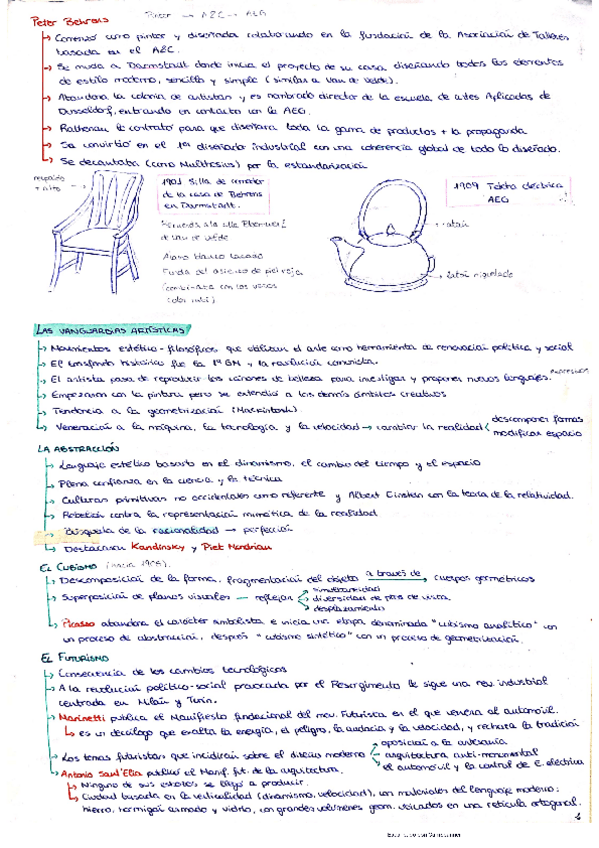 Pintor → AZC → AEG
Peter Behrens
Comenzó como pintor y diseñador colaborando en la fundación de la Asociación de Talleres
basada en el A&C.
Se muda a Darmstadt donde inicia el proyecto de su casa diseñando todos los elementos
de estilo moderno, sencillo y simple (similar a Van de Velde).
Abandona la colonia de artistas y es nombrado director de la escuela de artes Aplicadas de
Düsseldorf, entrando en contacto con la AEG.
Rathenau le contrató para que diseñara toda la gama de productos + la propaganda
Se convirtió en el 1er diseñador industrial con una coherencia global de todo lo diseñado.
Se decantaba (como Muthesius) por la estandarización
respaldo
+ alto
1901 Silla de comedor
de la casa de Behrens
en Darmstadt.
Recuerda a la silla
de Van de Velde
Álamo blanco lacado
Funda del asiento de piel roja
(combinaba con los vasos
color rubí)
1909 Tetera eléctrica
AEG
latón niquelado
LAS VANGUARDIAS ARTÍSTICAS
Movimientos estético-filosóficos que utilizan el arte como herramienta de renovación política y social
El trasfondo histórico fue la 1ª GM y la revolución comunista.
El artista pasa de reproducir los cánones de belleza para investigar y proponer nuevos lenguajes. expresivos
Empezaron con la pintura pero se extendió a los demás ámbitos creativos
Tendencia a la geometrización (Mackintosh)
Veneración a la máquina, la tecnología y la velocidad → cambiar la realidad
descomponer formas
modificar espacio
LA ABSTRACCIÓN
Lenguaje estético basado en el dinamismo, el cambio del tiempo y el espacio
Plena confianza en la ciencia y la técnica
Culturas primitivas no occidentales como referente y Albert Einstein con la teoría de la relatividad.
Rebelión contra la representación mimética de la realidad
Búsqueda de la racionalidad → perfección
Destacaron Kandinsky y Piet Mondrian
EL CUBISMO
Descomposición de la forma, fragmentación del objeto a través de → cuerpos geométricos
Superposición de planos visuales → reflejan
simultaneidad
diversidad de ptos de vista
desplazamiento
Picasso abandona el carácter simbolista e inicia una etapa denominada "cubismo analítico" con
un proceso de abstracción, después "cubismo sintético" con un proceso de geometrización.
EL FUTURISMO
Consecuencia de los cambios tecnológicos
A la revolución político-social provocada por el Resorgimento le sigue una rev. industrial
centrada en Milán y Turín.
Marinetti publica el Manifiesto fundacional del mov. Futurista en el que venera al automóvil.
es un decálogo que exalta la energía, el peligro, la audacia y la velocidad, y rechaza la tradición
Los temas futuristas que incidirán sobre el diseño moderno
oposición a la artesanía
arquitectura anti-monumental
el automóvil y la central de E. eléctrica
Antonio Sant'Elia publicó el Manif. fut. de la arquitectura.
Ninguno de sus esbozos se llegó a producir.
Ciudad basada en la verticalidad (dinamismo, velocidad), con materiales del lenguaje moderno:
hierro, hormigón armado y vidrio, con grandes volúmenes geom. ubicados en una retícula ortogonal.